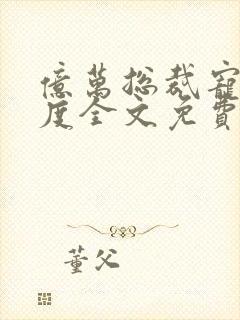 億萬总裁寵
度全文免費
董父